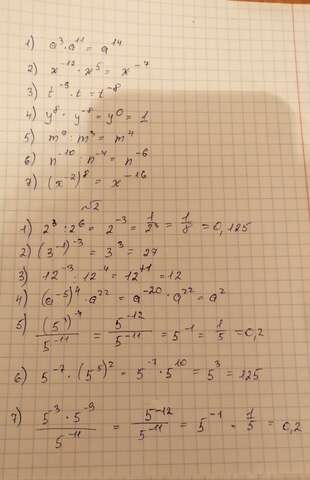 1) a³·a¹¹ = a¹⁴
2) x⁻¹²·x⁵ = x⁻⁷
3) t⁻⁹·t = t⁻⁸
4) y⁸·y⁻⁸ = y⁰ = 1
5) m⁹:m³ = m⁴
6) n⁻¹⁰:n⁻⁴ = n⁻⁶
7) (x⁻²)⁸ = x⁻¹⁶
№2
1) 2³:2⁶ = 2⁻³ = 1/2³ = 1/8 = 0,125
2) (3⁻¹)⁻³ = 3³ = 27
3) 12⁻³:12⁻⁴ = 12⁺¹ = 12
4) (a⁻⁵)⁴·a²² = a⁻²⁰·a²² = a²
5) / 5⁻¹¹ = 5⁻¹² / 5⁻¹¹ = 5⁻¹ = 1/5 = 0,2
6) 5⁻⁷·(5⁵)² = 5⁻⁷·5¹⁰ = 5³ = 125
7) 5⁻³·5⁻⁹ / 5⁻¹¹ = 5⁻¹² / 5⁻¹¹ = 5⁻¹ = 1/5 = 0,2